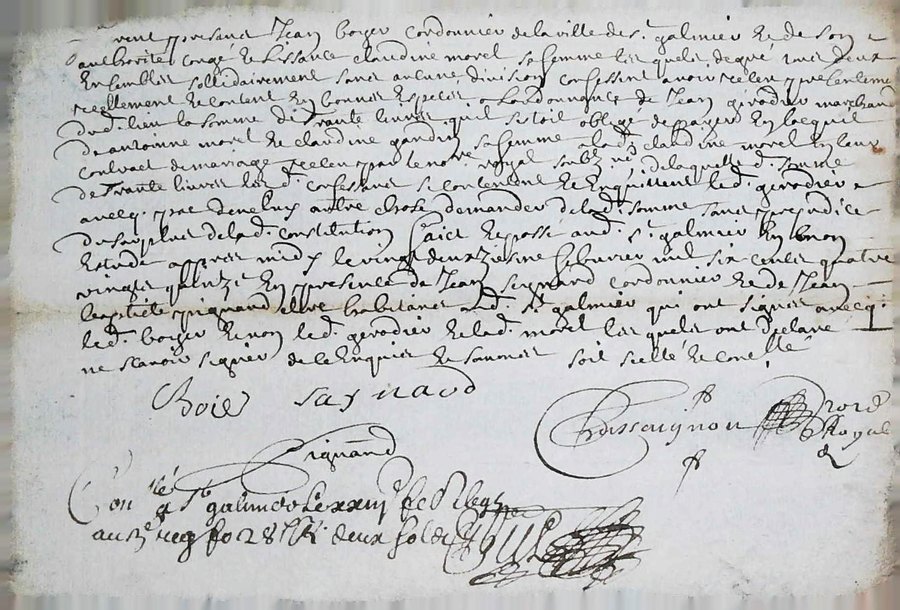 Furent presans Jean boyer cordonnier de la ville de st galmier Et de son
authorité congé Et Lissance claudine morel sa femme lesquels de gré tous deux
Ensembles sollidairement sans aucune division confessent avoir receu presentement
reellement Et content En bonnes Especes a Lordonnance de Jean girodier marchand
dud. lieu la somme de trante livres quil sestoit obligé de payer En lacquit
de antoinne morel Et claudine gandin sa femme a lad. claudine morel En leur
contract de mariage receu par le nore royal soubz.né de laquelle d. somme
de trante livres lesd. confessans se contentent Et En quittent led. girodier
avecq. pac de ne luy autre chose demander de lad. somme sans prejudice
du surplus de lad. constitution faict Et passé aud. st galmier En mon
Estude appres midy le vingt deuxziesme febvrier mil six cents quatre
vingts quinze En presence de Jean signard cordonnier Et de Jean
baptiste pignand clerc habitants aud. st galmier qui ont signés avecq.
led. boyer Et non led. girodier Et lad. morel lesquels ont declaré
ne scavoir signer de ce Enquis Et sommés soit scellé Et conellé
Boie saynard
Pignand
Chassaignon nore
Royal
Con.llé a st galmier le xxiij febr 1695
au 3e reg fo 28 deux sols